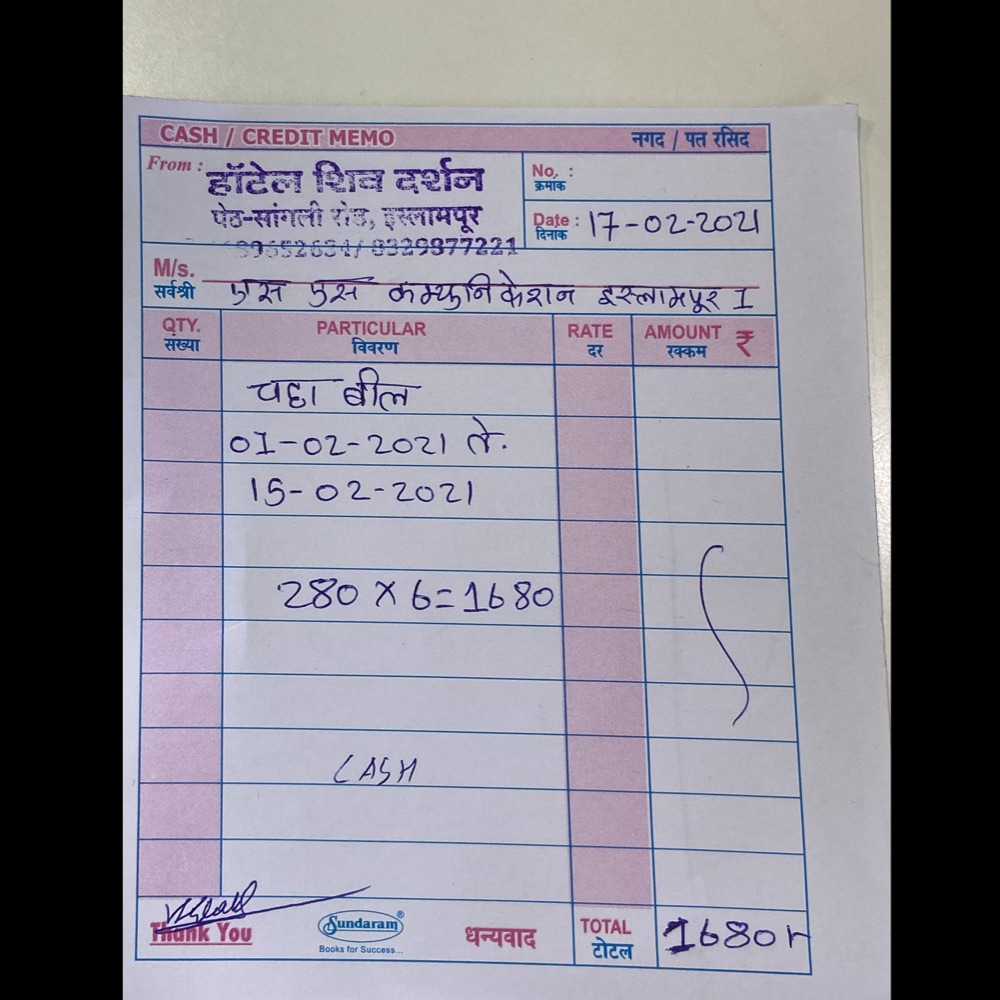 CASH / CREDIT MEMO नगद / पत रसिद
From :
हॉटेल शिव दर्शन
पेठ-सांगली रोड, इस्लामपूर
99652634/ 8329877221
No. :
क्रमांक
Date : 17-02-2021
दिनांक
M/s.
सर्वश्री एस एस कम्युनिकेशन इस्लामपूर I
QTY. PARTICULAR RATE AMOUNT ₹
संख्या विवरण दर रक्कम
चहा बील
01-02-2021 ते.
15-02-2021
280 X 6=1680
CASH
Thank You
Sundaram®
Books for Success...
धन्यवाद
TOTAL
टोटल
1680